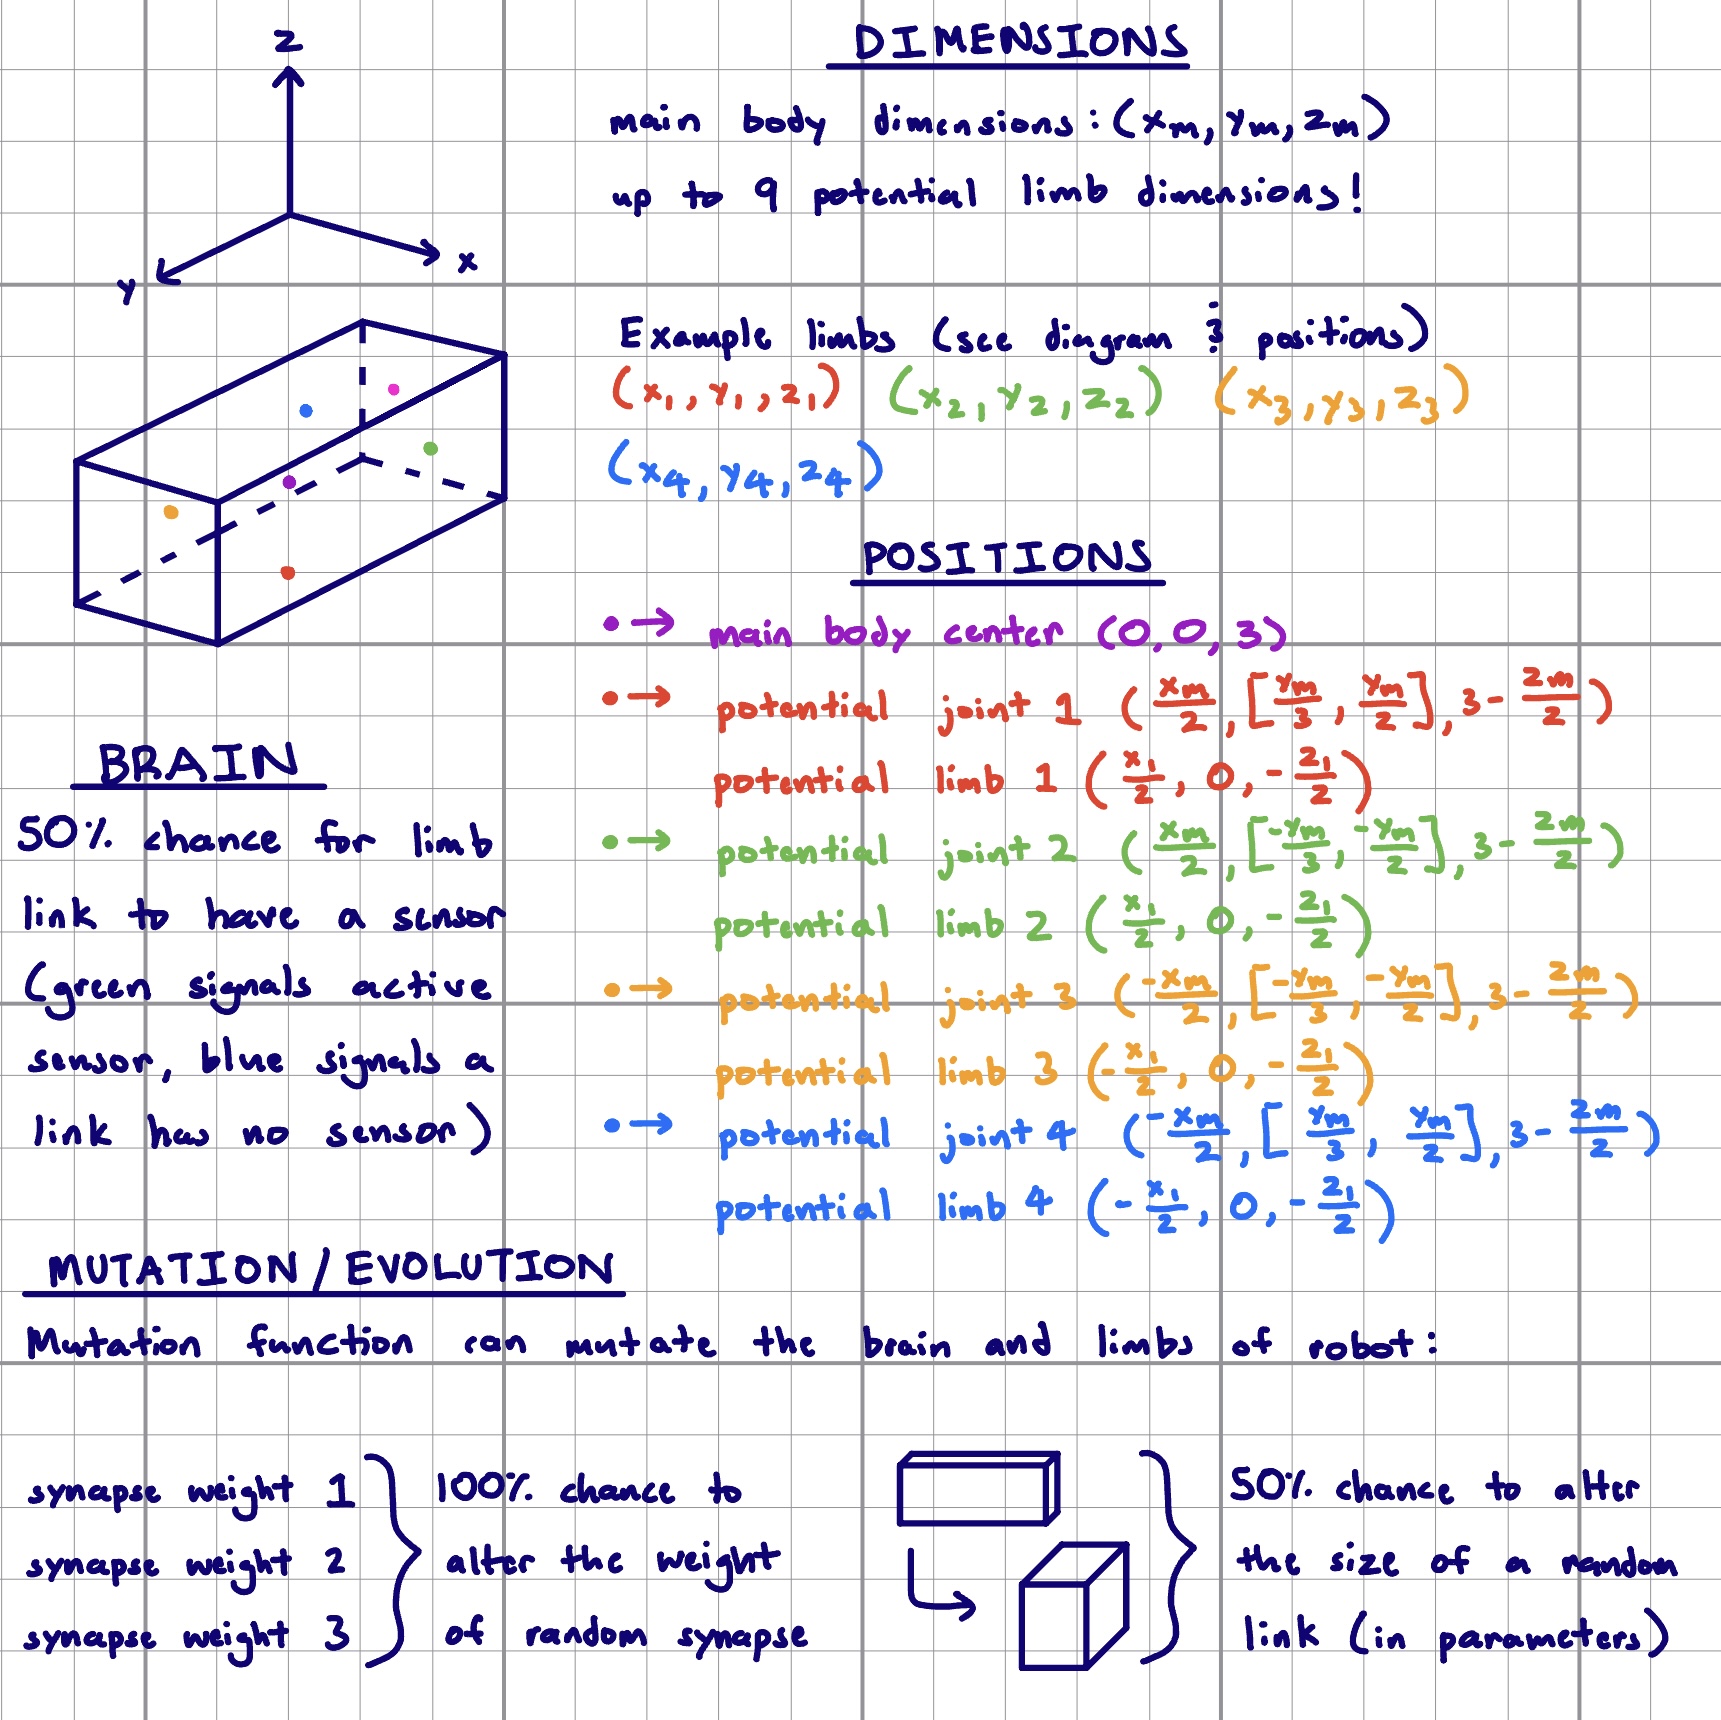 z
x
y
DIMENSIONS
main body dimensions: (xm, ym, zm)
up to 9 potential limb dimensions!
Example limbs (see diagram & positions)
(x₁, y₁, z₁) (x₂, y₂, z₂) (x₃, y₃, z₃)
(x₄, y₄, z₄)
POSITIONS
• → main body center (0, 0, 3)
• → potential joint 1 (xm/2, [ym/3, ym/2], 3 - zm/2)
potential limb 1 (x₁/2, 0, -z₁/2)
• → potential joint 2 (xm/2, [-ym/3, -ym/2], 3 - zm/2)
potential limb 2 (x₁/2, 0, -z₁/2)
• → potential joint 3 (-xm/2, [-ym/3, -ym/2], 3 - zm/2)
potential limb 3 (-x₁/2, 0, -z₁/2)
• → potential joint 4 (-xm/2, [ym/3, ym/2], 3 - zm/2)
potential limb 4 (-x₁/2, 0, -z₁/2)
BRAIN
50% chance for limb
link to have a sensor
(green signals active
sensor, blue signals a
link has no sensor)
MUTATION / EVOLUTION
Mutation function can mutate the brain and limbs of robot:
synapse weight 1
synapse weight 2
synapse weight 3
100% chance to
alter the weight
of random synapse
50% chance to alter
the size of a random
link (in parameters)